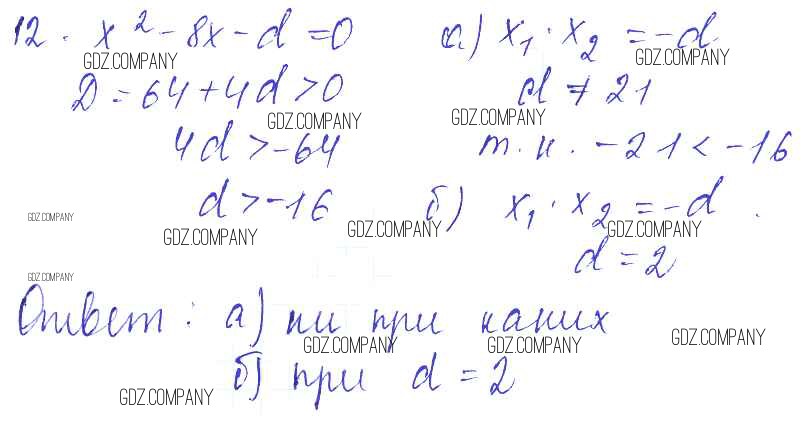 12. x² - 8x - d = 0
GDZ.COMPANY
D = 64 + 4d > 0
GDZ.COMPANY
4d > -64
d > -16
GDZ.COMPANY
GDZ.COMPANY
а) x₁ · x₂ = -d
GDZ.COMPANY
d ≠ 21
GDZ.COMPANY
т.к. -21 < -16
б) x₁ · x₂ = -d
GDZ.COMPANY
GDZ.COMPANY
d = 2
GDZ.COMPANY
Ответ: а) ни при каких
GDZ.COMPANY
GDZ.COMPANY
GDZ.COMPANY
б) при d = 2
GDZ.COMPANY